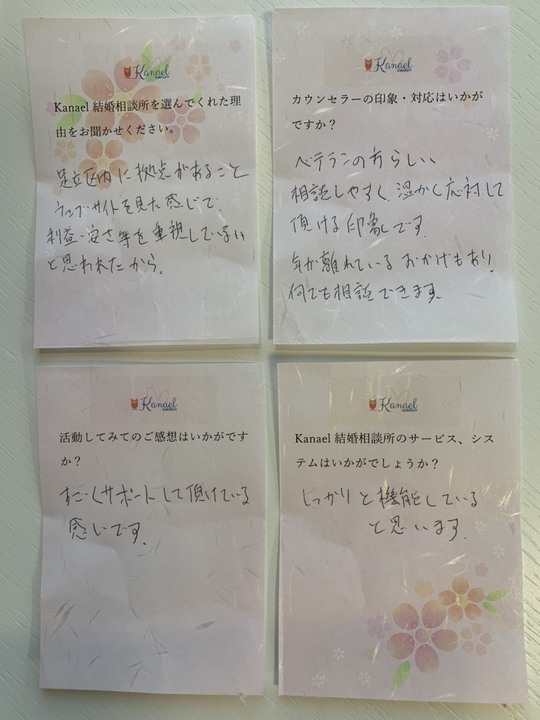 Kanael
Kanael 結婚相談所を選んでくれた理
由をお聞かせください。
足立区内に拠点があること
ウェブサイトを見た感じで、
利益・安さ等を重視していない
と思われたから。
Kanael
カウンセラーの印象・対応はいかが
ですか？
ベテランの方らしい
相談しやすく、温かく応対して
頂ける印象です。
年が離れているおかげもあり、
何でも相談できます。
Kanael
活動してみてのご感想はいかがです
か？
すごくサポートして頂けている
感じです。
Kanael
Kanael 結婚相談所のサービス、シス
テムはいかがでしょうか？
しっかりと機能している
と思います。